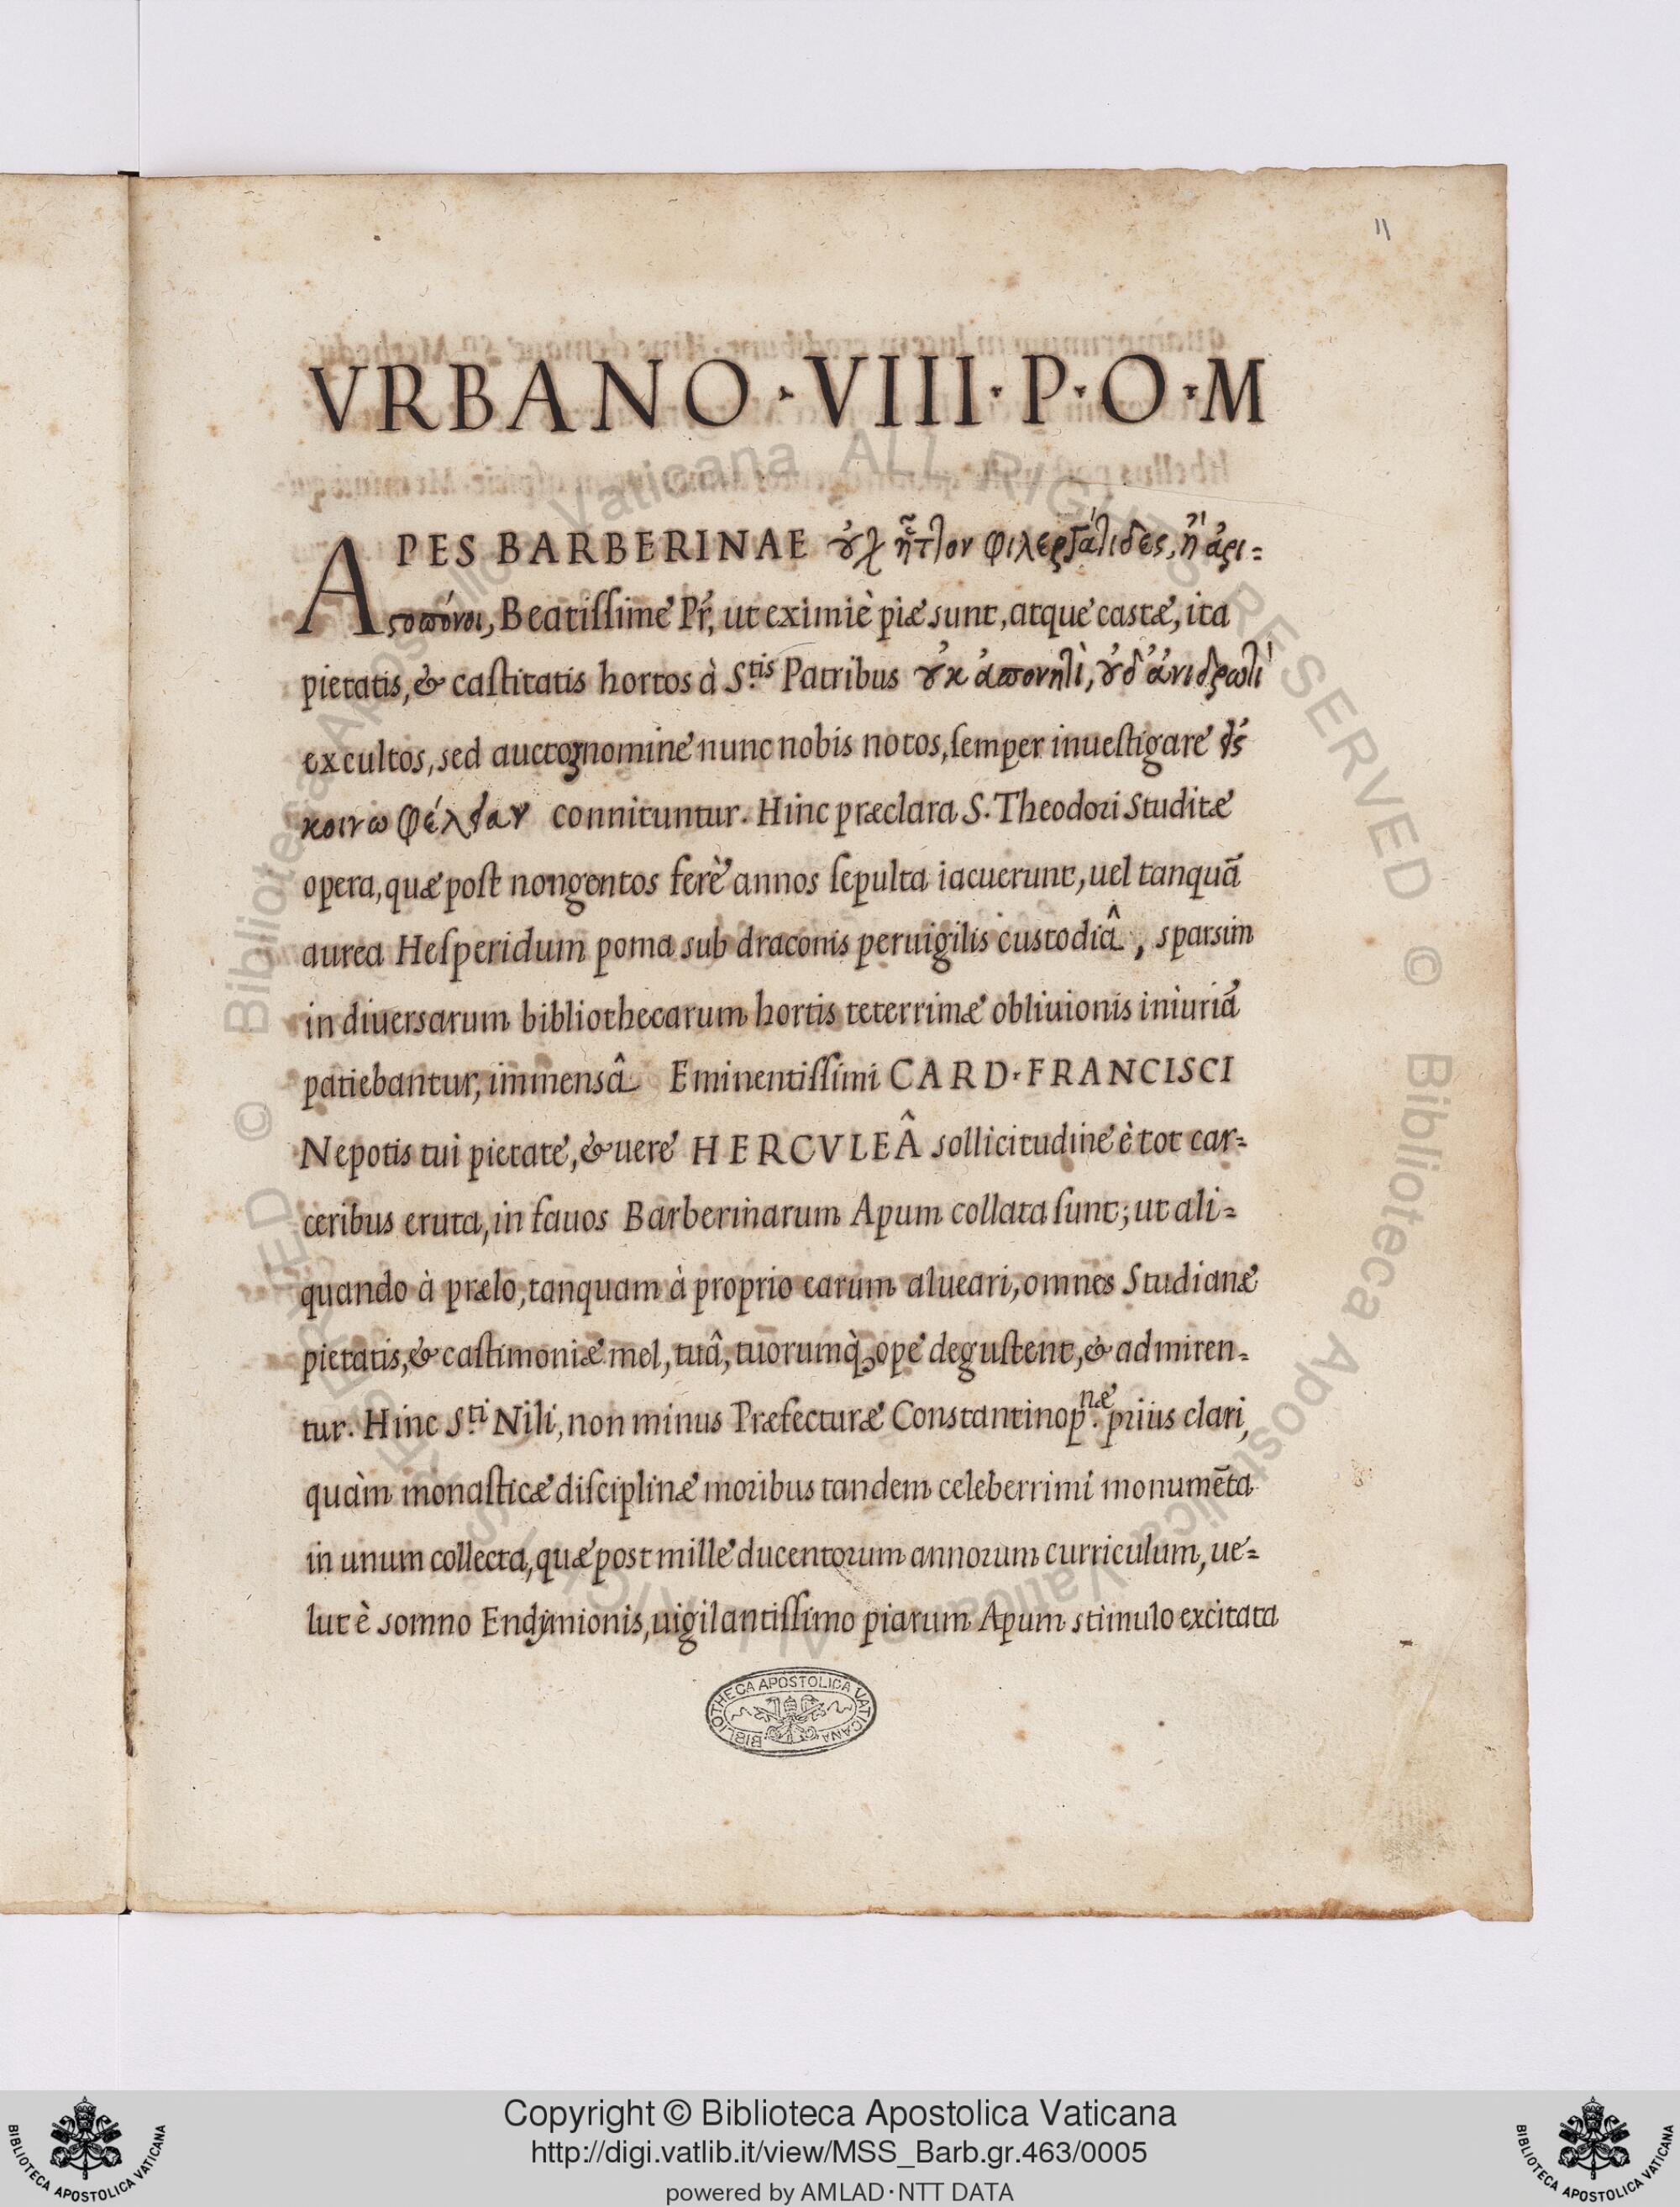 11
VRBANO · VIII · P · O · M
APES BARBERINAE οὐχ ἧττον φιλεργάτιδες, ἢ ἀρι-
στοπόνοι, Beatissime Pr̃, ut eximiè piæ sunt, atque castæ, ita
pietatis, & castitatis hortos à S.tis Patribus οὐκ ἀπονητὶ, οὐδ' ἀνιδρωτὶ
excultos, sed auctoꝝ nomine nunc nobis notos, semper inuestigare
connituntur. Hinc præclara S. Theodori Studitæ
opera, quæ post nongentos ferè annos sepulta iacuerunt, uel tanquã
aurea Hesperidum poma sub draconis peruigilis custodiâ, sparsim
in diuersarum bibliothecarum hortis teterrimæ obliuionis iniuriã
patiebantur, immensâ Eminentissimi CARD · FRANCISCI
Nepotis tui pietate, & uere HERCVLEÂ sollicitudine è tot car-
ceribus eruta, in fauos Barberinarum Apum collata sunt; ut ali-
quando à prælo, tanquam à proprio earum alueari, omnes Studianæ
pietatis, & castimoniæ mel, tuâ, tuorumq̀; ope degustent, & admiren-
tur. Hinc S.ti Nili, non minus Præfecturæ Constantinop.næ priùs clari,
quàm monasticæ disciplinæ moribus tandem celeberrimi monumẽta
in unum collecta, quæ post mille ducentorum annorum curriculum, ue-
lut è somno Endymionis, uigilantissimo piarum Apum stimulo excitata
BIBLIOTHECA APOSTOLICA VATICANA
© Biblioteca Apostolica Vaticana ALL RIGHTS RESERVED © Biblioteca Apostolica Vaticana ALL RIGHTS RESERVED
Copyright © Biblioteca Apostolica Vaticana
http://digi.vatlib.it/view/MSS_Barb.gr.463/0005
powered by AMLAD·NTT DATA
BIBLIOTECA APOSTOLICA VATICANA
BIBLIOTECA APOSTOLICA VATICANA